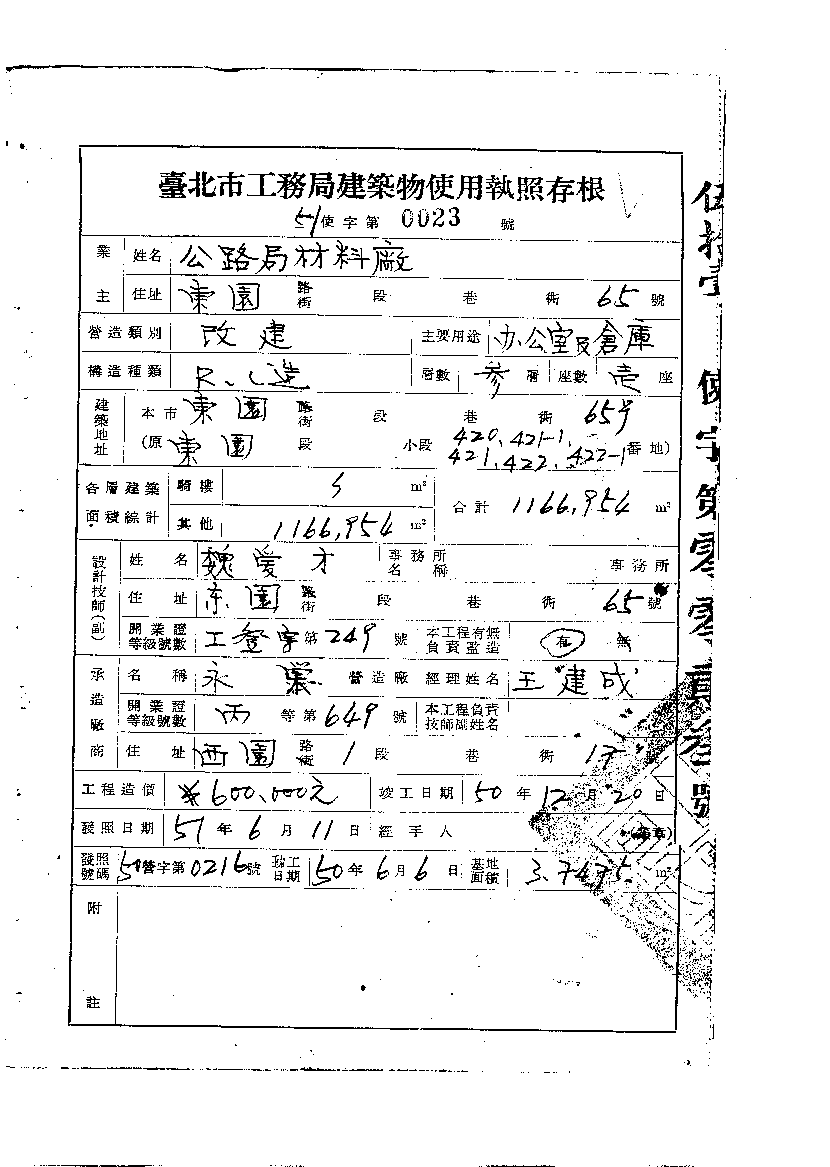 臺北市工務局建築物使用執照存根
51使字第 0023 號
業主 姓名 公路局材料廠
住址 東園 路街 段 巷 衖 65 號
營造類別 改建 主要用途 办公室及倉庫
構造種類 R.C造 層數 參 層 座數 壱 座
建築地址 本市 東園 路街 段 巷 衖 65号
(原 東園 段 小段 420、421-1、421、422、422-1 番地)
各層建築面積綜計 騎樓 m² 合計 1166,954 m²
其他 1166,954 m²
設計技師(副) 姓名 魏愛才 事務所名稱 事務所
住址 东園 路街 段 巷 衖 65 號
開業證等級號數 工登字第 249 號 本工程有無負責監造 有 無
承造廠商 名稱 永 營造廠 經理姓名 王建成
開業證等級號數 丙 等第 649 號 本工程負責技師副姓名
住址 西園 路街 1 段 巷 衖 17 號
工程造價 ¥600,000元 竣工日期 50 年 12 月 20 日
發照日期 51 年 6 月 11 日 經手人 (蓋章)
發照號碼 50營字第0216號 動工日期 50 年 6 月 6 日 基地面積 m²
附註
伍拾壹使字第零零貳叁號